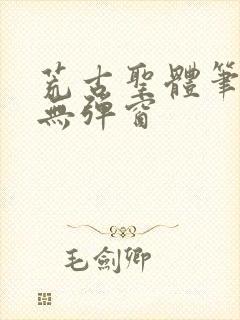 荒古聖體筆
無彈窗
毛劍卿